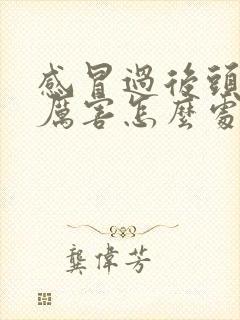 感冒過後頭
厲害怎麼處
龔偉芳